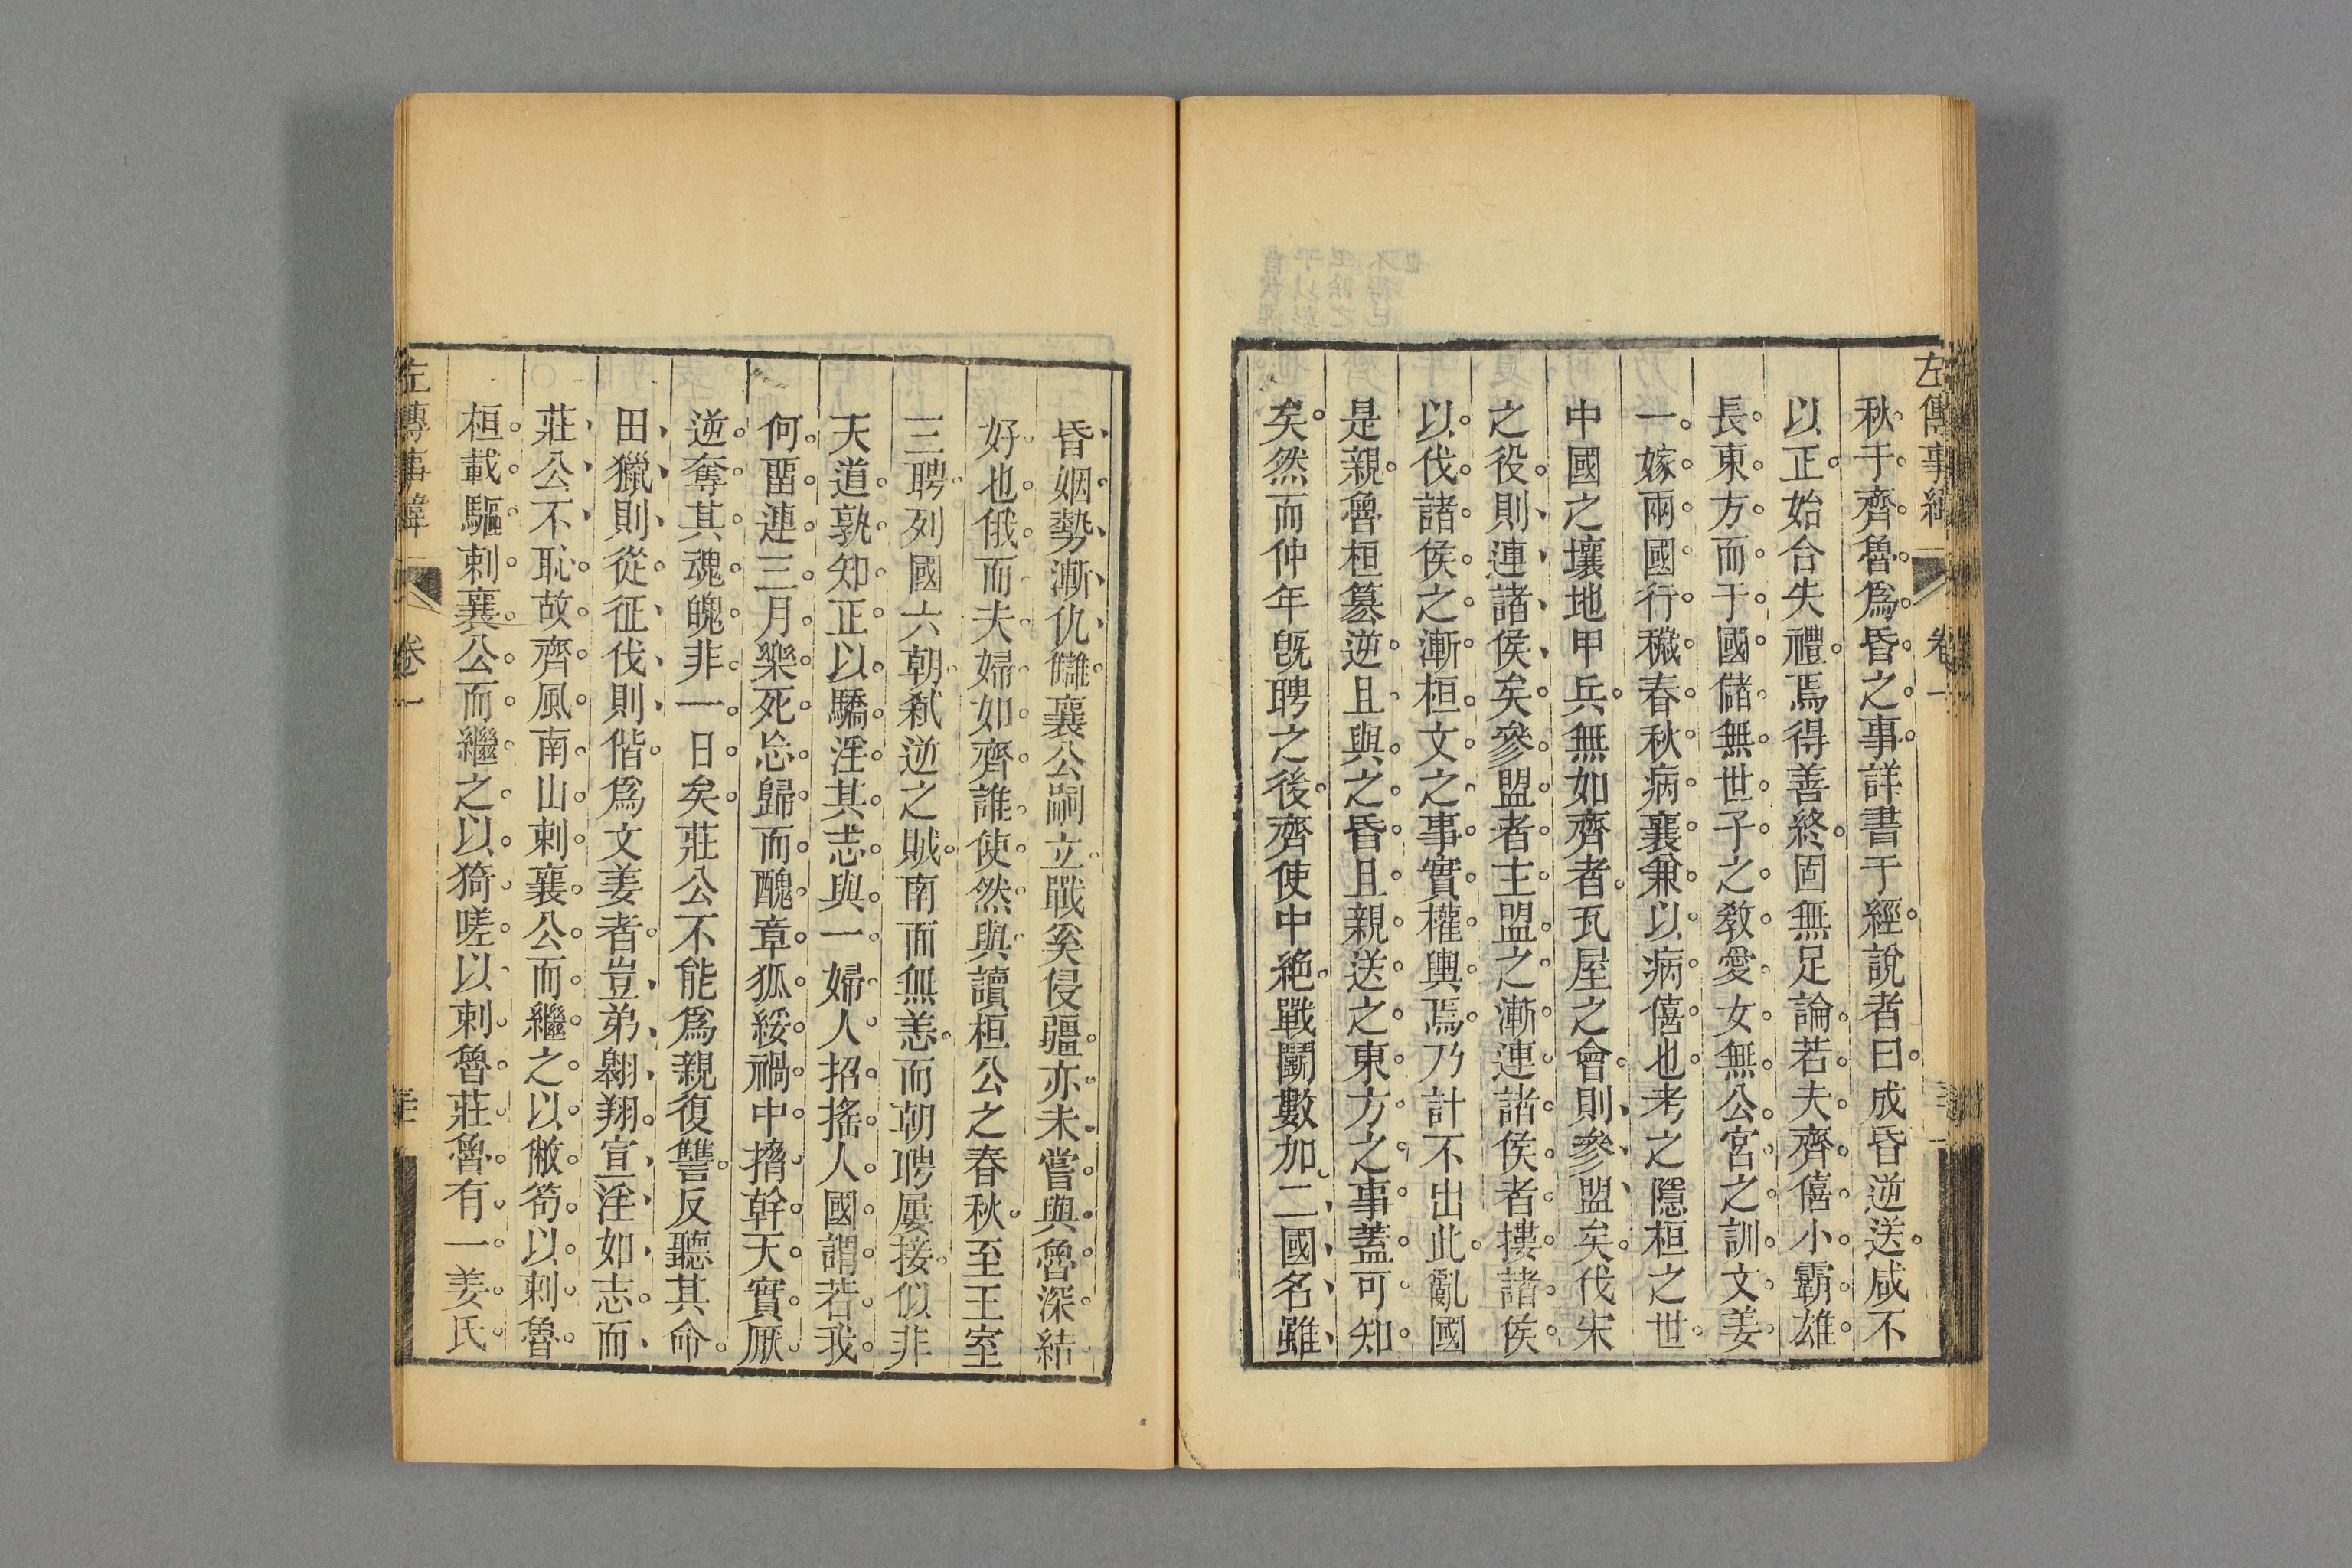 左傳事緯
卷一
秋于齊魯爲昏之事詳書于經說者曰成昏逆送咸不
以正始合失禮焉得善終固無足論若夫齊僖小霸雄
長東方而于國儲無世子之教愛女無公宮之訓文姜
一嫁兩國行穢春秋病襄兼以病僖也考之隱桓之世
中國之壤地甲兵無如齊者瓦屋之會則參盟矣伐宋
之役則連諸侯矣參盟者主盟之漸連諸侯者摟諸侯
以伐諸侯之漸桓文之事實權輿焉乃計不出此亂國
是親魯桓篡逆且與之昏且親送之東方之事蓋可知
矣然而仲年旣聘之後齊使中絶戰鬭數加二國名雖
昏姻勢漸仇讎襄公嗣立戰奚侵疆亦未嘗與魯深結
好也俄而夫婦如齊誰使然與讀桓公之春秋至王室
三聘列國六朝弒逆之賊南面無恙而朝聘屢接似非
天道孰知正以驕淫其志與一婦人招搖人國謂若我
何畱連三月樂死忘歸而醜章狐綏禍中搚幹天實厭
逆奪其魂魄非一日矣莊公不能爲親復讐反聽其命
田獵則從征伐則偕爲文姜者豈弟翱翔宣淫如志而
莊公不恥故齊風南山刺襄公而繼之以敝笱以刺魯
桓載驅刺襄公而繼之以猗嗟以刺魯莊魯有一姜氏
左傳事緯
卷一